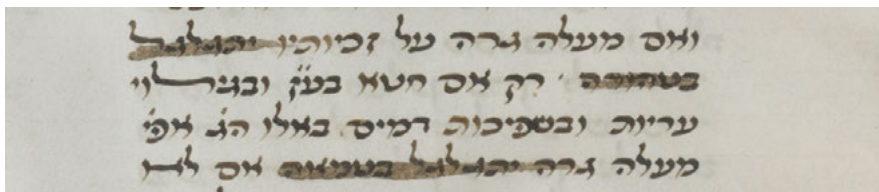 ואם מעלה גרה על זכיותיו יתגלגל
בטהורה רק אם חטא בע"ז ובגילוי
עריות ובשפיכות דמים באלו הג' אפי'
מעלה גרה יתגלגל בטמאה אם לאו